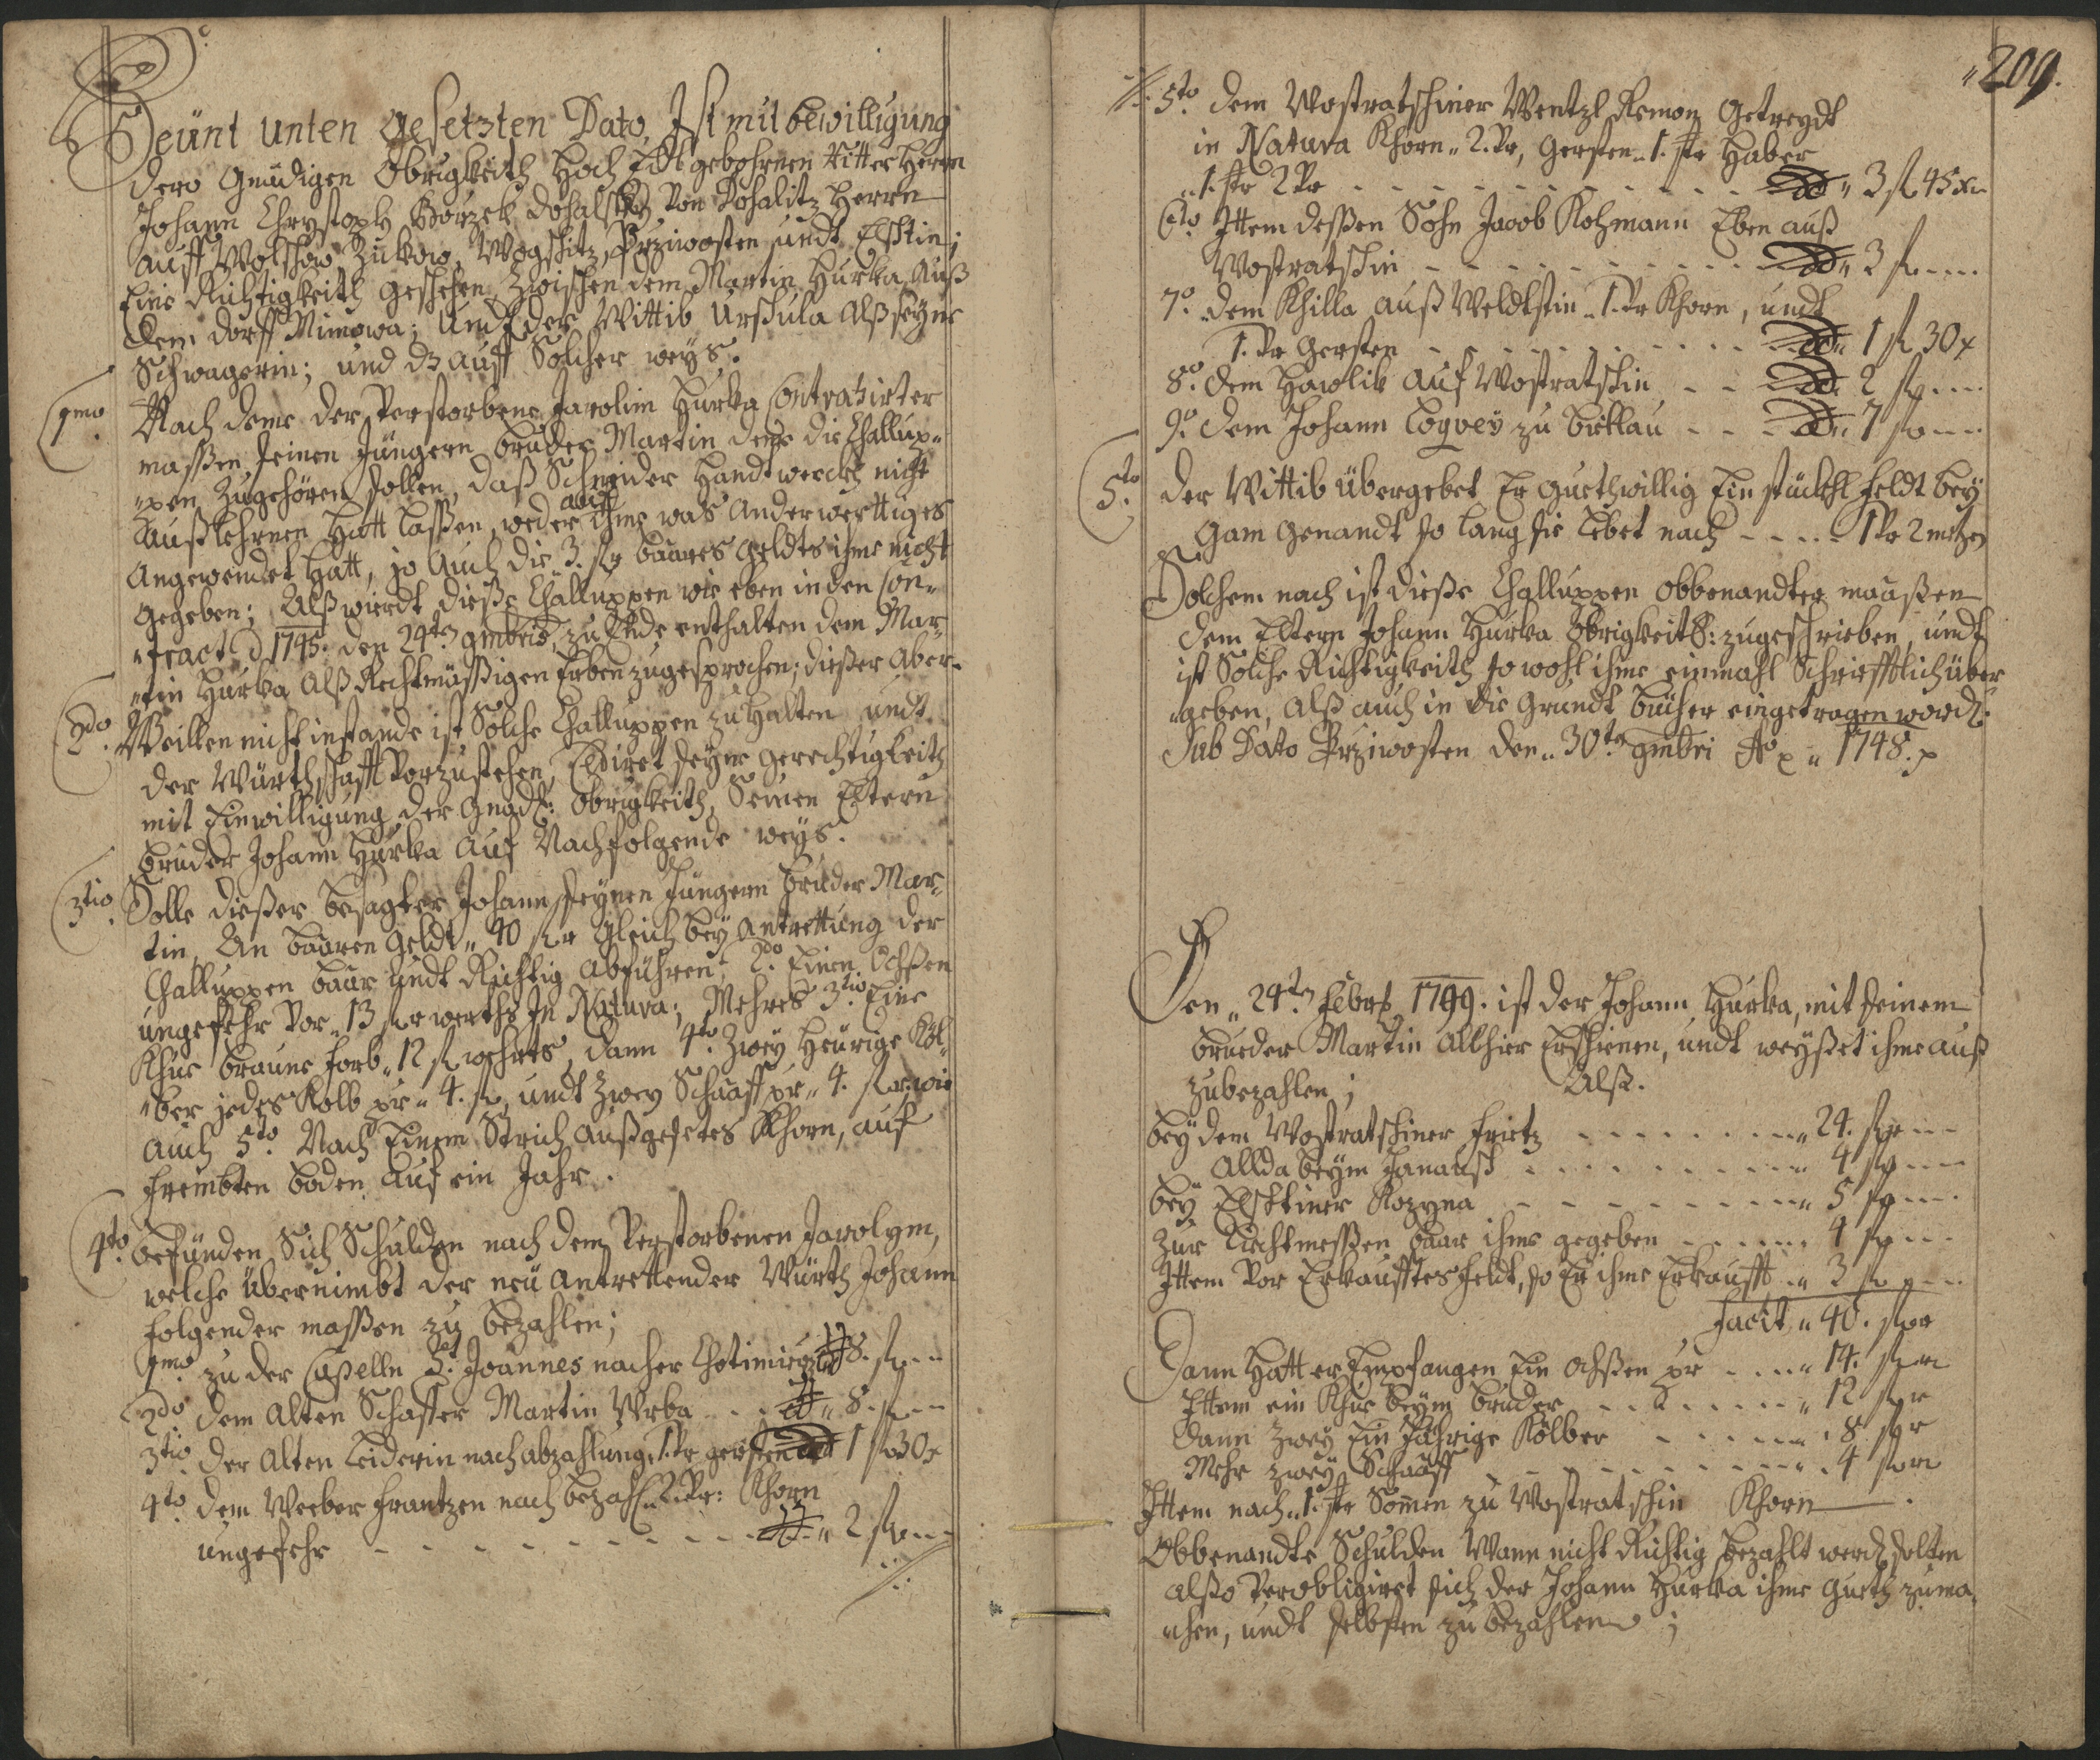 Heünt unten gesetzten Dato, Ist mit bewilligung
dero Gnädigen Obrigkeith Hoch Edl gebohrnen Ritter Herrn
Johann Chrystoph Borzek Dohalsky Von Dohalitz Herrn
auff Wolschow Zukow, Wogschitz, Prziwosten undt Elschtin;
Eine Richtigkeith geschehen Zwischen dem Martin Hurka auß
dem dorff Mimowa; Undt der Wittib Urschula alß seyne
Schwagerin; und dz auff Solcher weys.
1mo Nach deme der Verstorbene Jarolim Hurka Contrahirter
massen seinen Jüngern bruder Martin deme die Challup-
pen Zugehören sollen, daß Schneider Handtwerckh nicht
außlehrnen Hatt lassen, weder auch ihme was anderwerttiges
angewendet Hatt, jo auch die 3. fl baares geldts ihme nicht
gegeben; Alß wierdt dieße Challuppen wie eben in den Con-
tract d 1745. den 24ten 9mbris, zu Ende enthalten dem Mar-
tin Hurka alß Rechtmässigen Erben zugesprochen; dießer aber
2do Weillen nicht instande ist Solche Challuppen zu halten undt
der Würthschafft Vorzustehen, Cediret seyne gerechtigkeith
mit Einwilligung der Gnädl: Obrigkeith, Seinen Eltern
bruder Johann Hurka auf Nachfolgende weys.
3tio Solle dießer besagter Johann seynen Jüngern bruder Mar-
tin, An baaren geldt 40 fl gleich bey antrettung der
Challuppen baar undt Richtig abführen; 2do Einen Ochßen
ungefehr Vor 13 fl werths In Natura; Mehres 3tio Eine
Khue braune farb 12 fl wehrts, dann 4to Zwey Heürige Köl-
ber jedes Kolb pr 4. fl, undt Zwey Schaaff pr 4. fl wie
auch 5to Nach Einem Strich außgesetes Khorn, auf
frembten boden auf ein Jahr.
4to Befünden Sich Schulden nach dem Verstorbenen Jarolym,
welche Übernimbt der neü antrettender Würth Johann
folgender massen zu bezahlen;
1mo zu der Capelln St. Joannes nacher Chotimierz 8. fl
2do dem alten Schaffer Martin Vrba 8. fl
3tio der alten Leiderin nach abzahlung 1. Vr gersten 1 fl 30 x
4to dem Weeber Frantzen nach bezahl 2 Vr: Khorn
ungefehr 2 fl
209.
5to dem Wostratschiner Wentzl Remon Getreydt
in Natura Khorn 2. Vr, Gersten 1. str Haber
1. str 2 Vr 3 fl 45 x
6to Ittem dessen Sohn Jacob Kohmann Eben auß
Wostratschin 3 fl
7o dem Khilla auß Weldtschin 1. Vr Khorn, undt
1. Vr Gersten 1 fl 30 x
8o dem Hawlik auf Wostratschin 2 fl
9o dem Johann Loqvey zu bukkau 7 fl
5to der Wittib übergebet Er guethwillig Ein stückhl feldt bey
Gam genandt so lang sie Lebet nach 1 Vr 2 metzen
Solchem nach ist dieße Challuppen obbenandter maaßen
dem Eltern Johann Hurka Obrigkeitl: zugeschrieben, undt
ist Solche Richtigkeith so wohl ihme einmahl Schriefftlich über
geben, alß auch in die Grundt bücher eingetragen word:
Sub Dato Przimosten den 30ten 9mbri Ao 1748.
Den 24ten Febrs 1749. ist der Johann Hurka, mit seinem
brueder Martin allhier Erschienen, undt weyßet ihme auß
zubezahlen; Alß.
bey dem Wostratschiner frietz 24. fl
Allda beym Hanausch 4 fl
bey Elschtiner Kozyna 5 fl
Zur Liechtmessen baar ihme gegeben 4 fl
Ittem Vor Erkaufftes feldt, so Er ihme Erkaufft 3 fl
Facit 40. fl
Dann Hatt er Empfangen Ein Ochßen pr 14. fl
Ittem ein Khue beym bruder 12 fl
Dann Zwey Ein Jährige Kölber 8 fl
Mehr Zwey Schaaff 4 fl
Ittem nach 1. str Sommen zu Wostratschin Khorn
Obbenandte Schulden Wann nicht Richtig bezahlt werd: solten
alßo Verobligiret sich der Johann Hurka ihme gueth zuma-
chen, undt selbsten zu bezahlen;